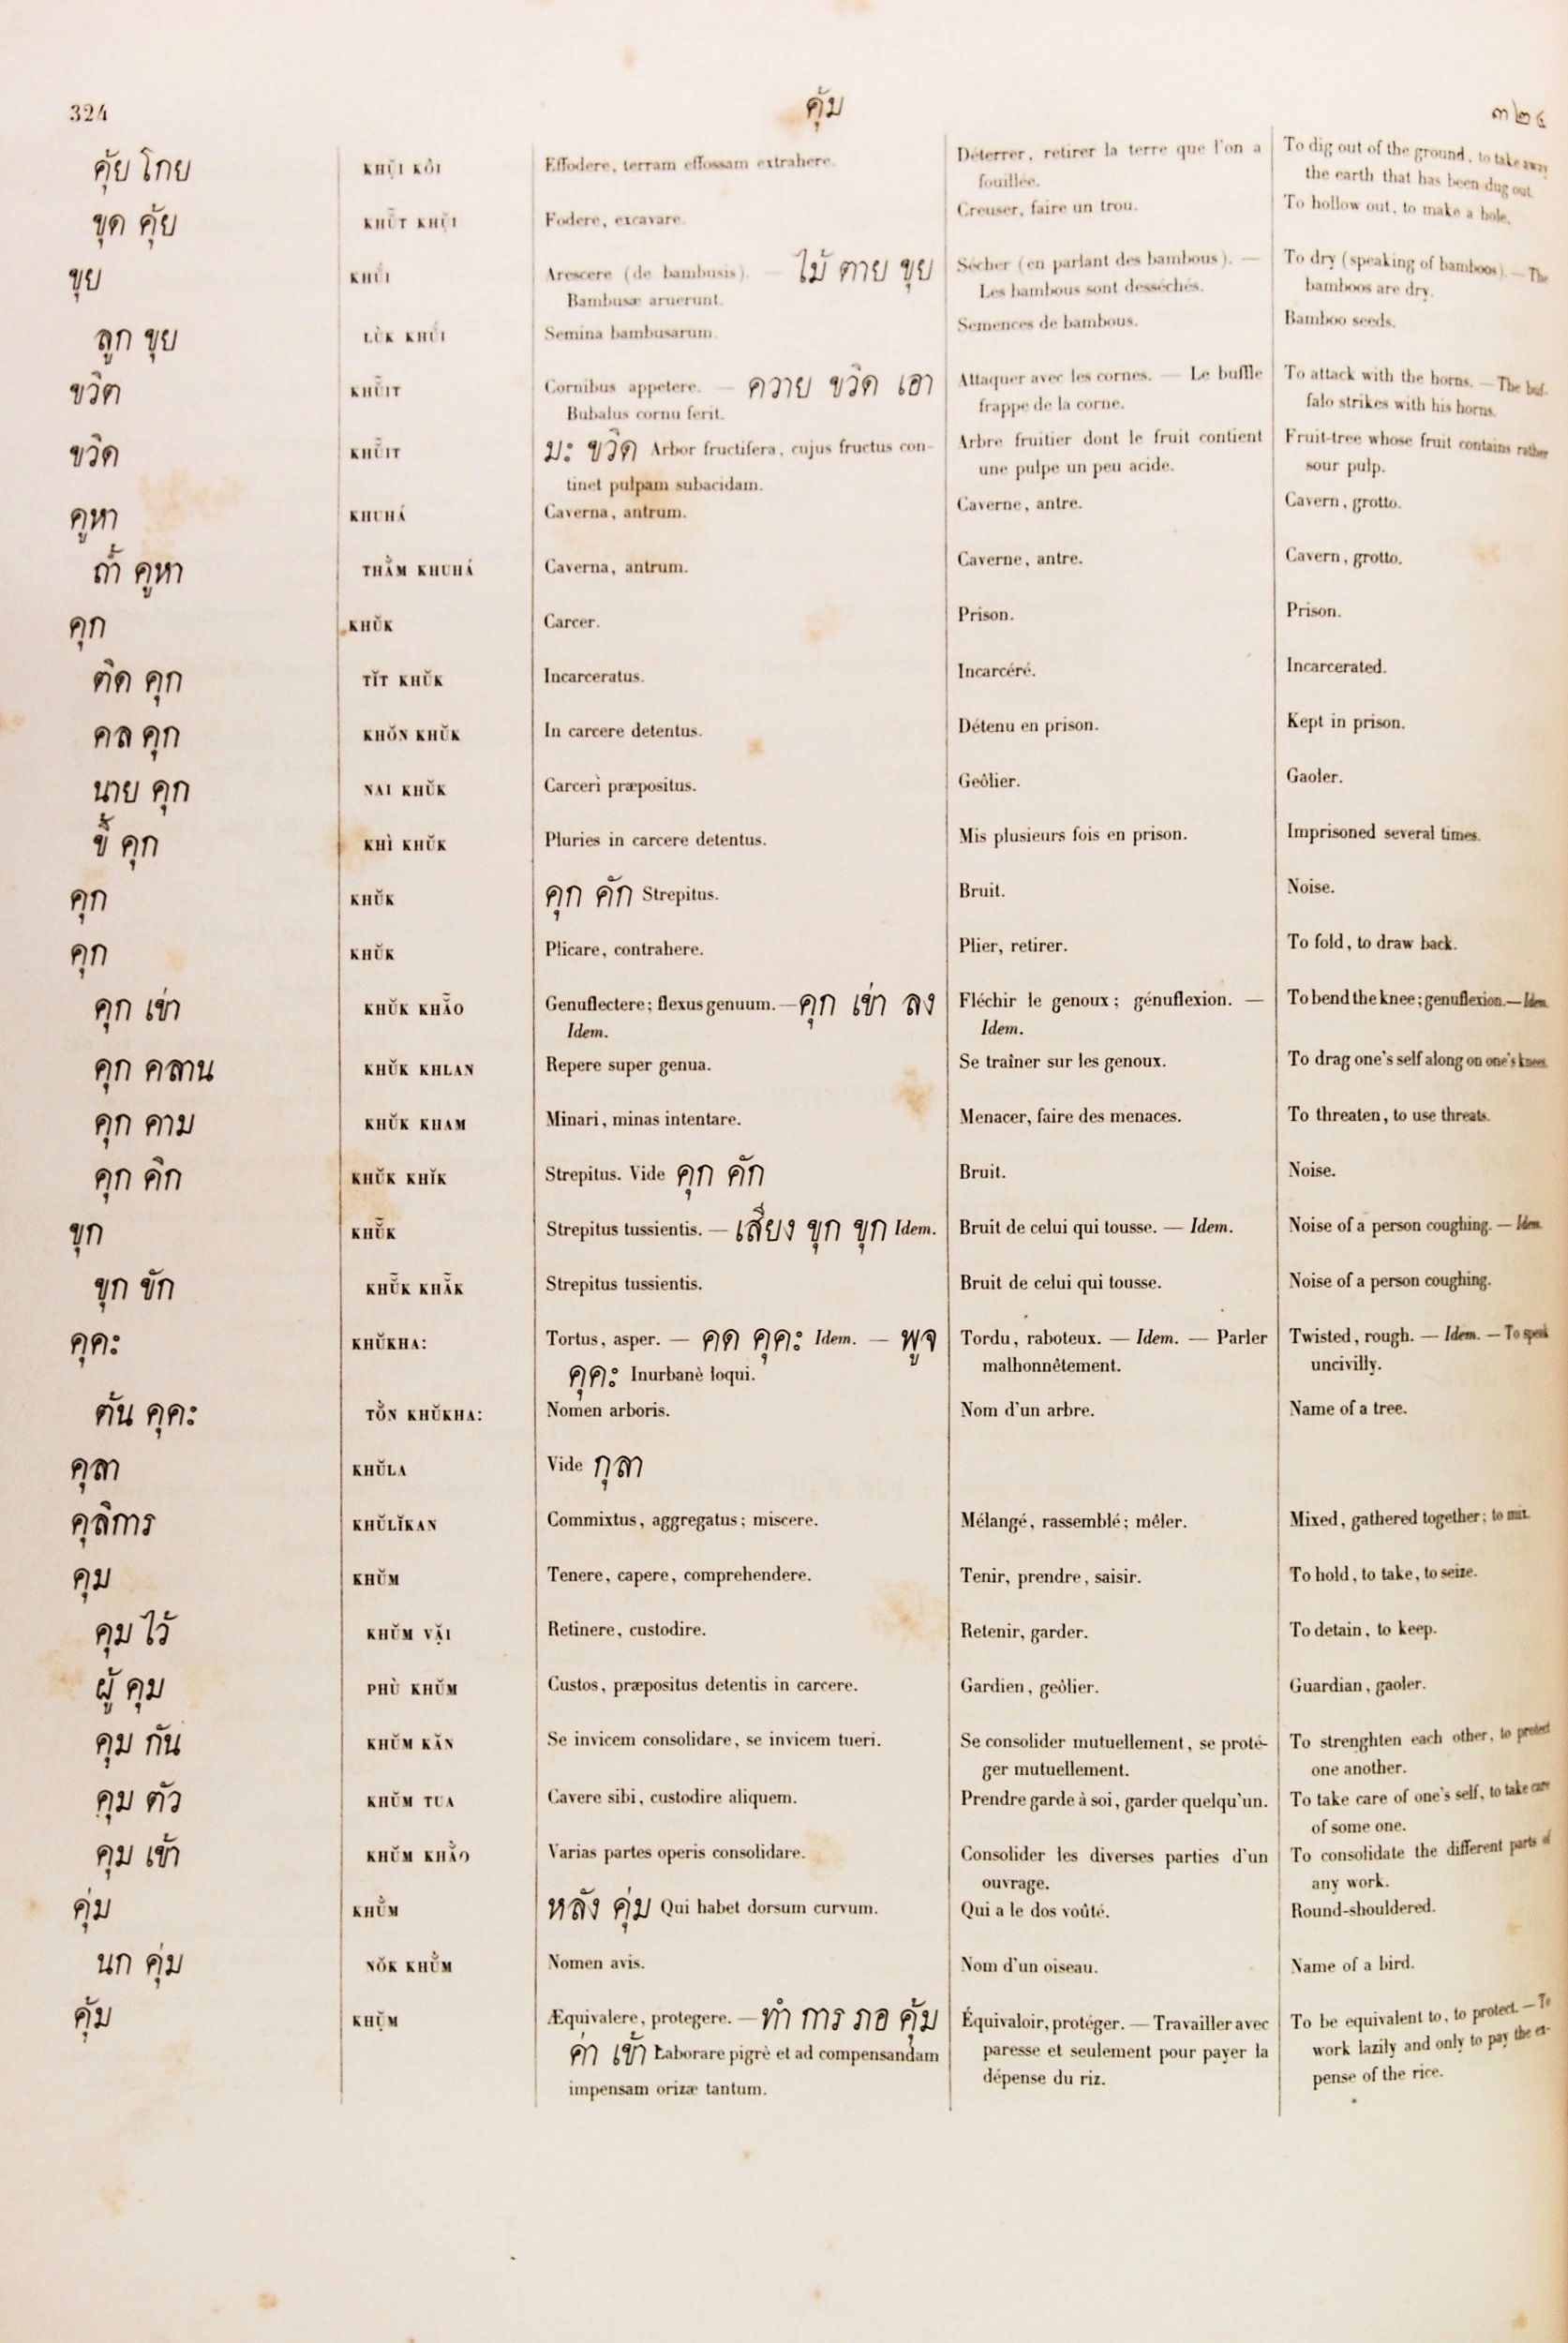 324 คุ้ม ๓๒๔
คุ้ย โกย KHỤ̆I KÔI Effodere, terram effossam extrahere. Déterrer, retirer la terre que l'on a To dig out of the ground, to take away
fouillée. the earth that has been dug out.
ขุด คุ้ย KHŬ̄T KHỤ̆I Fodere, excavare. Creuser, faire un trou. To hollow out, to make a hole.
ขุย KHŬ́I Arescere (de bambusis). — ไม้ ตาย ขุย Sécher (en parlant des bambous). — To dry (speaking of bamboos). — The
Bambusæ aruerunt. Les bambous sont desséchés. bamboos are dry.
ลูก ขุย LÙK KHŬ́I Semina bambusarum. Semences de bambous. Bamboo seeds.
ขวิด KHŬ̄IT Cornibus appetere. — ควาย ขวิด เอา Attaquer avec les cornes. — Le buffle To attack with the horns. — The buf-
Bubalus cornu ferit. frappe de la corne. falo strikes with his horns.
ขวิด KHŬ̄IT มะ ขวิด Arbor fructifera, cujus fructus con- Arbre fruitier dont le fruit contient Fruit-tree whose fruit contains rather
tinet pulpam subacidam. une pulpe un peu acide. sour pulp.
คูหา KHUHÁ Caverna, antrum. Caverne, antre. Cavern, grotto.
ถ้ำ คูหา THẰM KHUHÁ Caverna, antrum. Caverne, antre. Cavern, grotto.
คุก KHŬK Carcer. Prison. Prison.
ติด คุก TĬT KHŬK Incarceratus. Incarcéré. Incarcerated.
คล คุก KHŎN KHŬK In carcere detentus. Détenu en prison. Kept in prison.
นาย คุก NAI KHŬK Carceri præpositus. Geôlier. Gaoler.
ขี้ คุก KHÌ KHŬK Pluries in carcere detentus. Mis plusieurs fois en prison. Imprisoned several times.
คุก KHŬK คุก คัก Strepitus. Bruit. Noise.
คุก KHŬK Plicare, contrahere. Plier, retirer. To fold, to draw back.
คุก เข่า KHŬK KHĂ̄O Genuflectere; flexus genuum. — คุก เข่า ลง Fléchir le genoux; génuflexion. — To bend the knee; genuflexion. — Idem.
Idem. Idem.
คุก คลาน KHŬK KHLAN Repere super genua. Se traîner sur les genoux. To drag one's self along on one's knees.
คุก คาม KHŬK KHAM Minari, minas intentare. Menacer, faire des menaces. To threaten, to use threats.
คุก คิก KHŬK KHĬK Strepitus. Vide คุก คัก Bruit. Noise.
ขุก KHŬ̄K Strepitus tussientis. — เสียง ขุก ขุก Idem. Bruit de celui qui tousse. — Idem. Noise of a person coughing. — Idem.
ขุก ขัก KHŬ̄K KHĂ̄K Strepitus tussientis. Bruit de celui qui tousse. Noise of a person coughing.
คุคะ KHŬKHA: Tortus, asper. — คด คุคะ Idem. — พูจ Tordu, raboteux. — Idem. — Parler Twisted, rough. — Idem. — To speak
คุคะ Inurbanè loqui. malhonnêtement. uncivilly.
ต้น คุคะ TỒ̆N KHŬKHA: Nomen arboris. Nom d'un arbre. Name of a tree.
คุลา KHŬLA Vide กุลา
คุลิการ KHŬLĬKAN Commixtus, aggregatus; miscere. Mélangé, rassemblé; mêler. Mixed, gathered together; to mix.
คุม KHŬM Tenere, capere, comprehendere. Tenir, prendre, saisir. To hold, to take, to seize.
คุม ไว้ KHŬM VẶI Retinere, custodire. Retenir, garder. To detain, to keep.
ผู้ คุม PHÙ KHŬM Custos, præpositus detentis in carcere. Gardien, geôlier. Guardian, gaoler.
คุม กัน KHŬM KĂN Se invicem consolidare, se invicem tueri. Se consolider mutuellement, se proté- To strenghten each other, to protect
ger mutuellement. one another.
คุม ตัว KHŬM TUA Cavere sibi, custodire aliquem. Prendre garde à soi, garder quelqu'un. To take care of one's self, to take care
of some one.
คุม เข้า KHŬM KHẰO Varias partes operis consolidare. Consolider les diverses parties d'un To consolidate the different parts of
ouvrage. any work.
คุ่ม KHŬ̀M หลัง คุ่ม Qui habet dorsum curvum. Qui a le dos voûté. Round-shouldered.
นก คุ่ม NŎK KHŬ̀M Nomen avis. Nom d'un oiseau. Name of a bird.
คุ้ม KHỤ̆M Æquivalere, protegere. — ทำ การ ภอ คุ้ม Équivaloir, protéger. — Travailler avec To be equivalent to, to protect. — To
ค่า เข้า Laborare pigrè et ad compensandam paresse et seulement pour payer la work lazily and only to pay the ex-
impensam orizæ tantum. dépense du riz. pense of the rice.